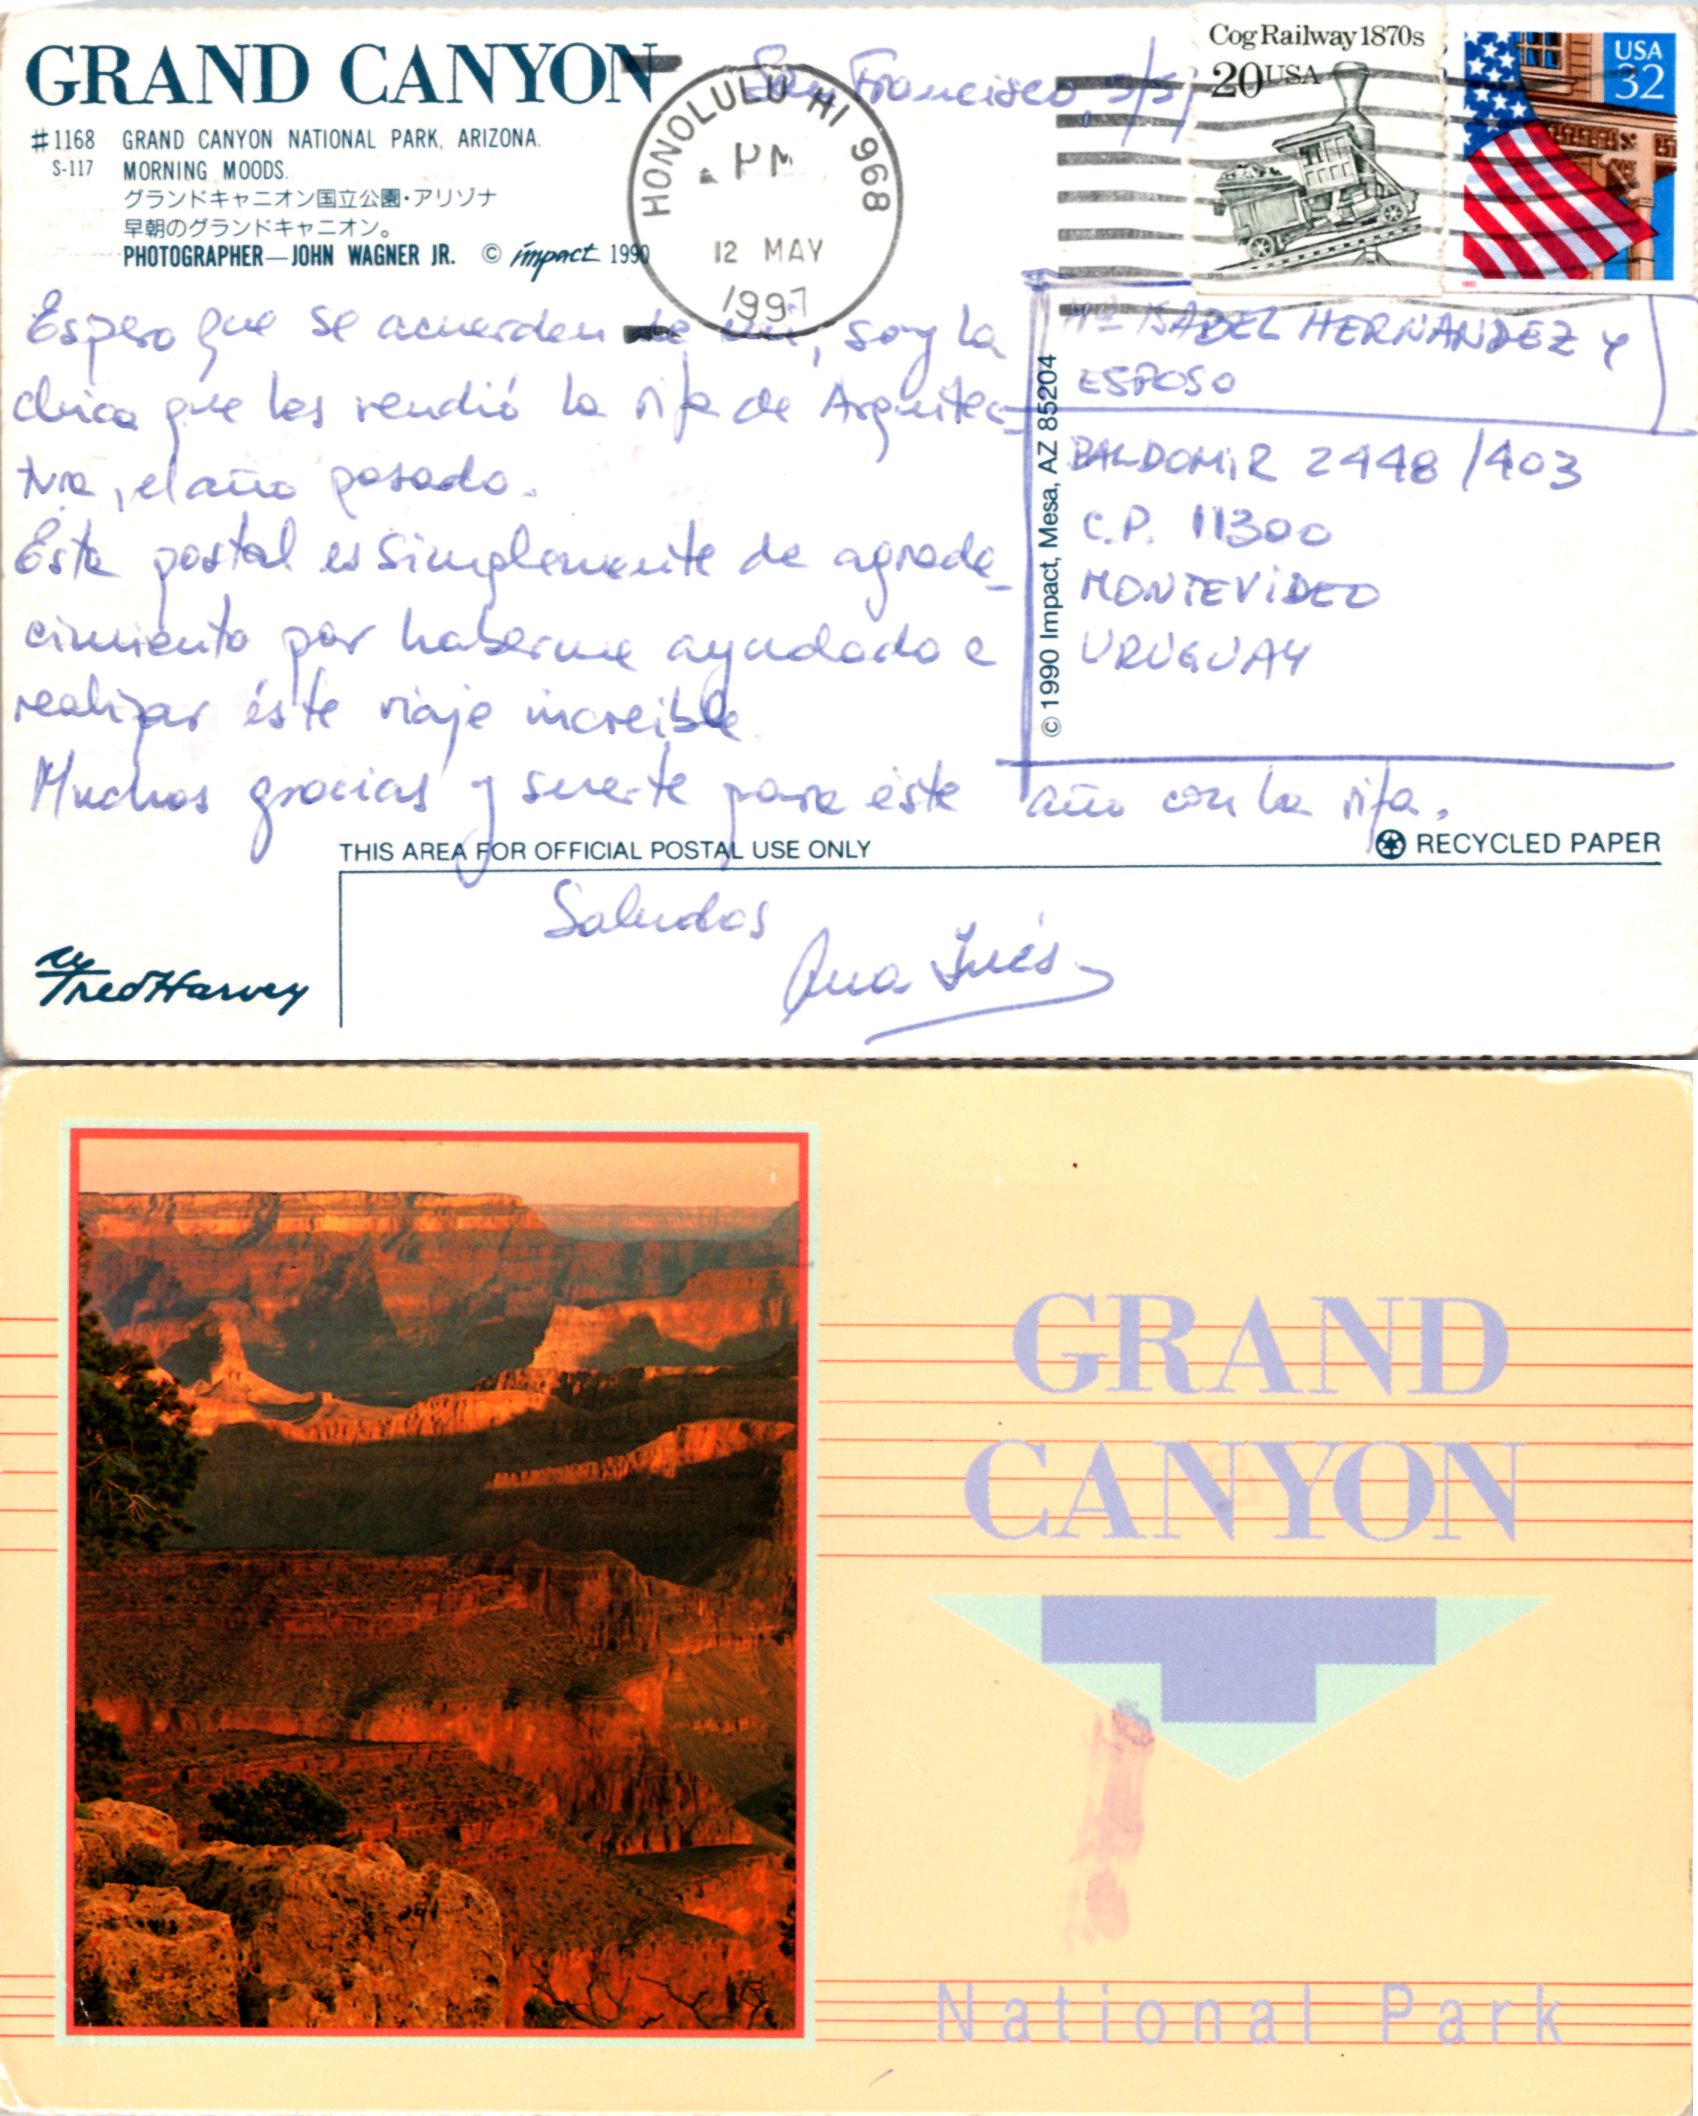 GRAND CANYON
#1168 GRAND CANYON NATIONAL PARK, ARIZONA.
S-117 MORNING MOODS.
グランドキャニオン国立公園・アリゾナ
早朝のグランドキャニオン。
PHOTOGRAPHER—JOHN WAGNER JR. © impact 1990
HONOLULU HI 968
PM
12 MAY
1997
San Francisco, 5/5/
Cog Railway 1870s
20 USA
USA
32
1995
Espero que se acuerden de mi, soy la
chica que les vendió la rifa de Arquitec-
tura, el año pasado.
Esta postal es simplemente de agrade-
cimiento por haberme ayudado a
realizar éste viaje increible.
Muchas gracias y suerte para éste año con la rifa.
Saludos
Ana Inés
Mª ISABEL HERNANDEZ Y
ESPOSO
BALDOMIR 2448 /403
C.P. 11300
MONTEVIDEO
URUGUAY
© 1990 Impact, Mesa, AZ 85204
THIS AREA FOR OFFICIAL POSTAL USE ONLY
RECYCLED PAPER
Fred Harvey
GRAND
CANYON
National Park